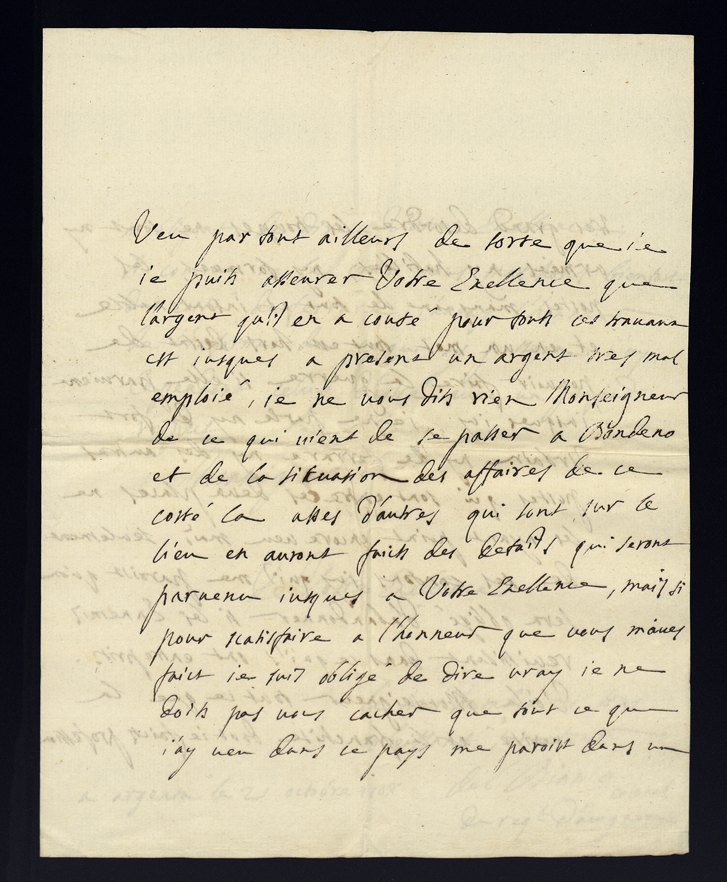 Veu par tout ailleurs de sorte que ie
ie puis asseurer Votre Exellence que
l'argent qu'il en a couté pour touts ces travaux
est iusques a present un argent tres mal
emploié, ie ne vous dits rien Monseigneur
de ce qui vient de se passer a Bondeno
et de la situation des affaires de ce
costé la asses d'autres qui sont sur le
lieu en auront faits des details qui seront
parvenu iusques a Votre Exellence, mais si
pour satisfaire a l'honneur que vous m'aves
faict ie suis obligé de dire vray ie ne
doits pas vous cacher que tout ce que
i'ay veu dans ce pays me paroist dans un